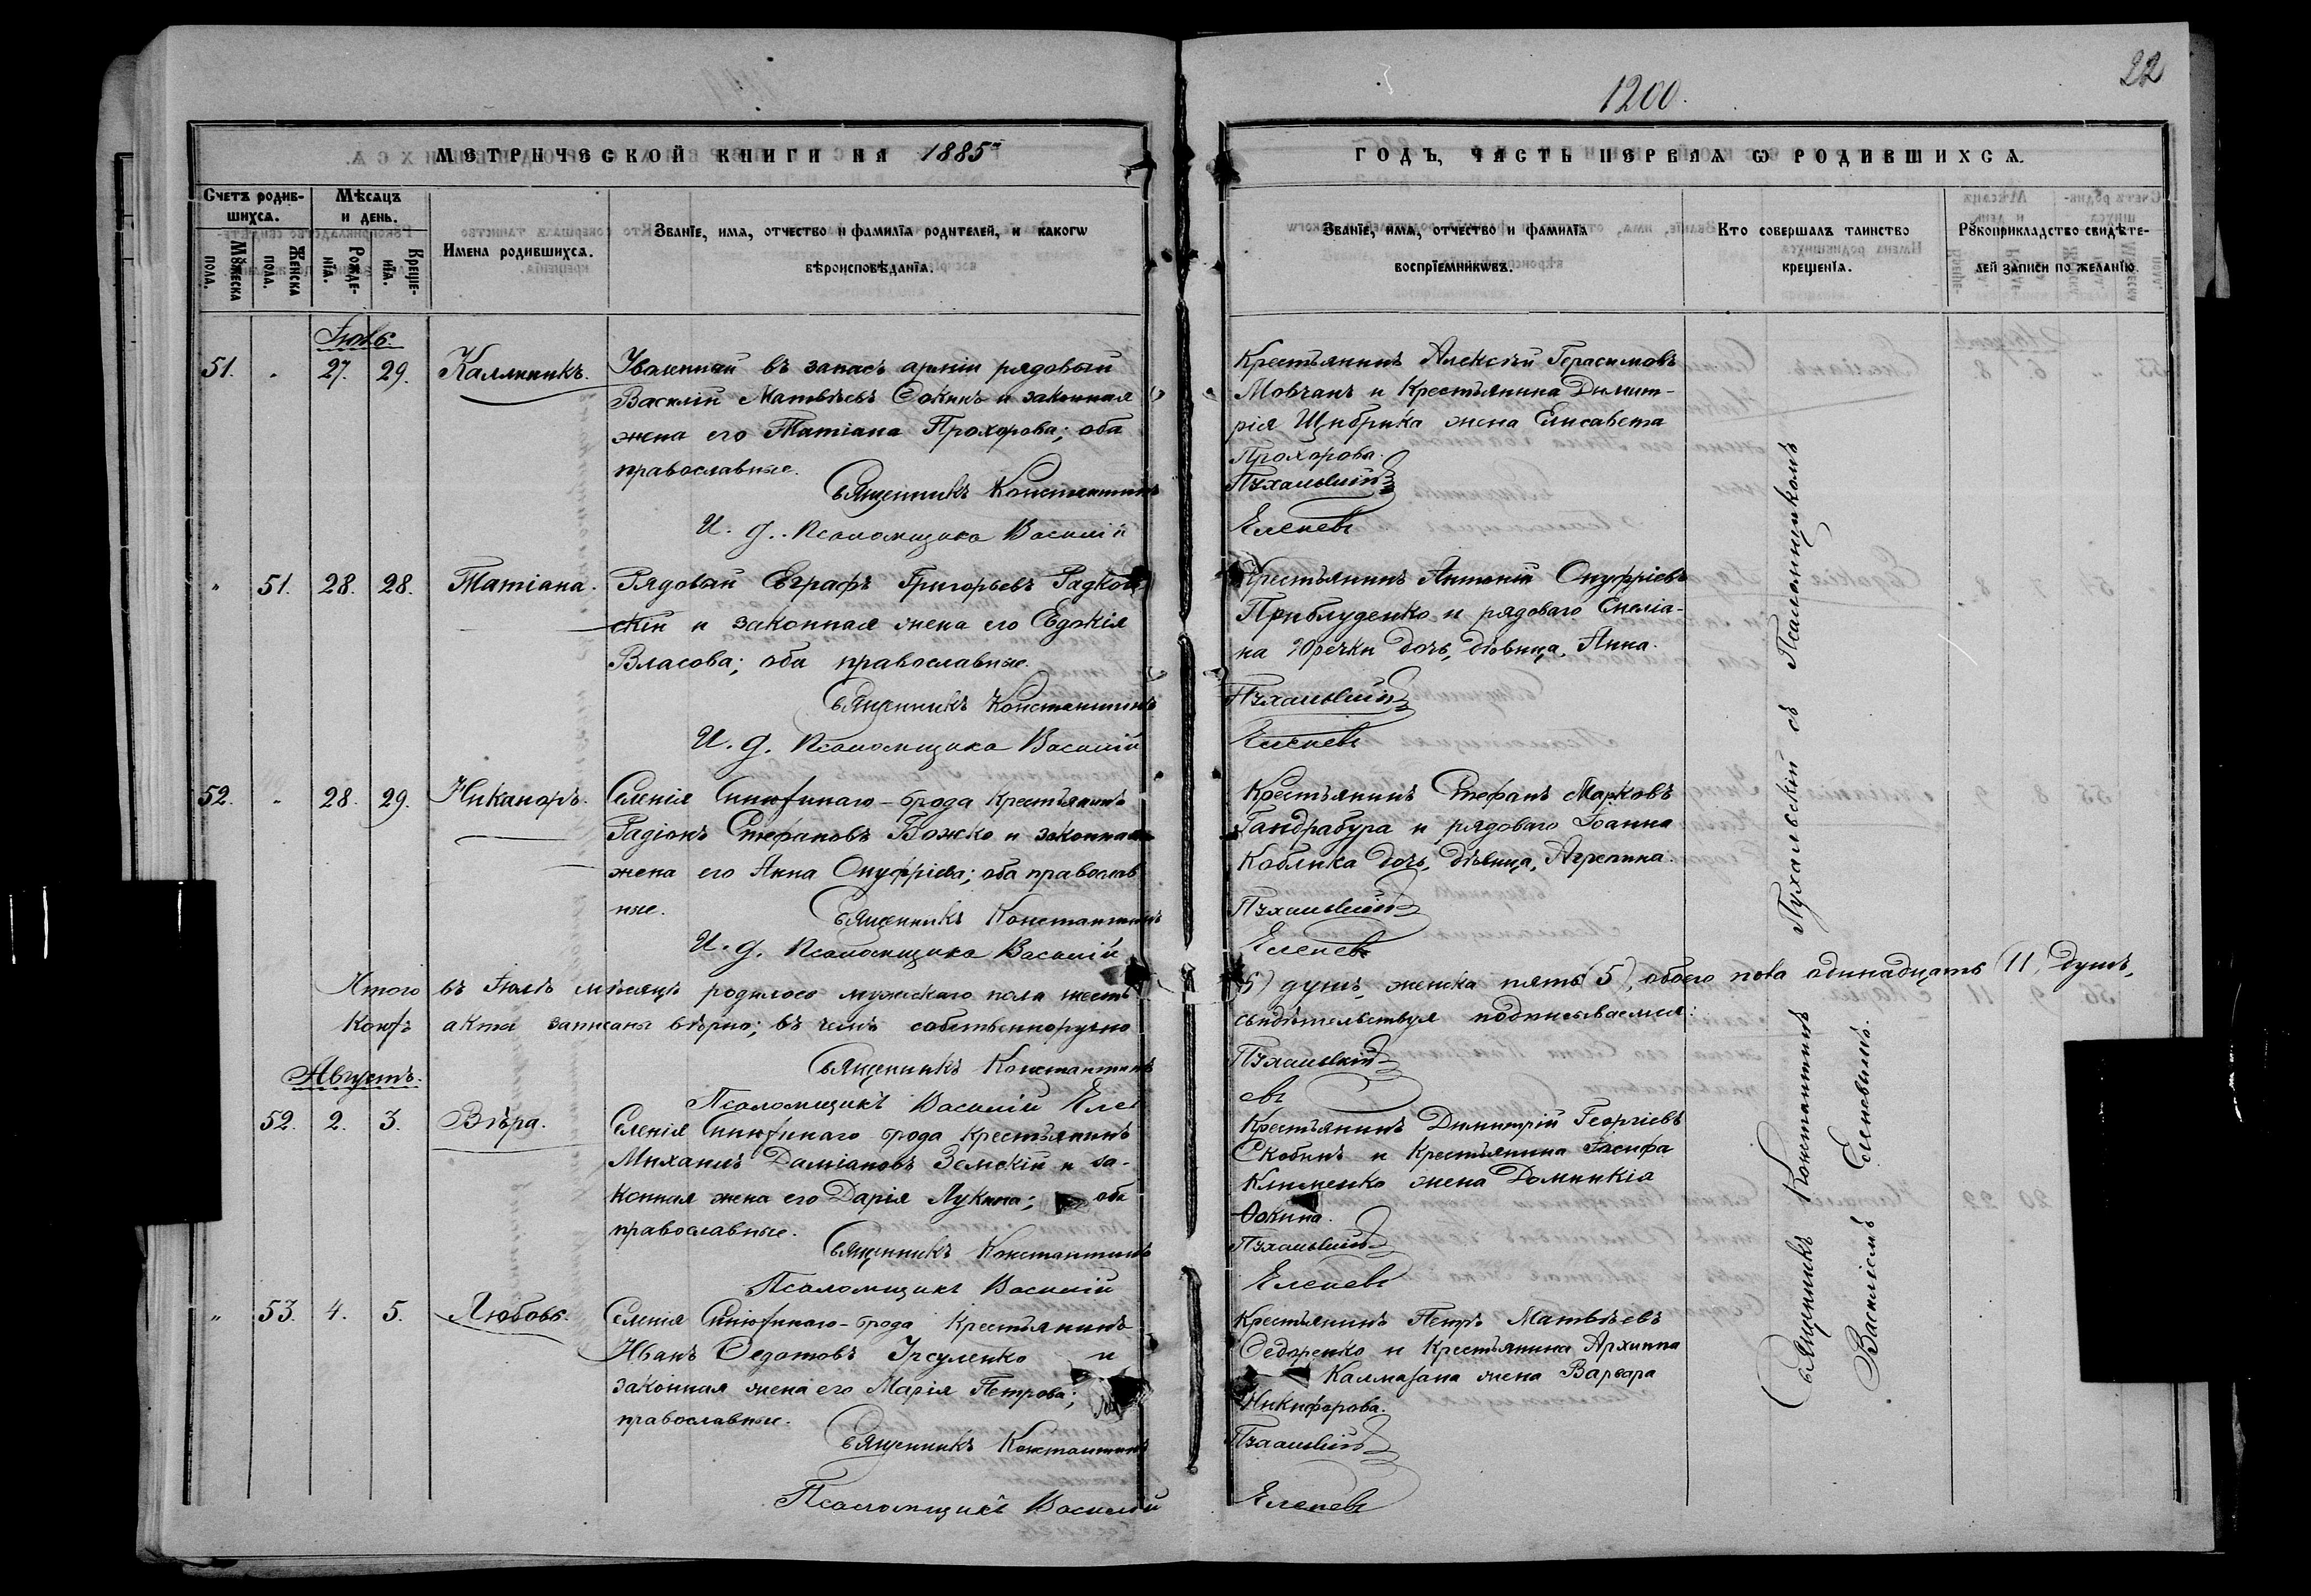 22
1200.
МЕТРИЧЕСКОЙ КНИГИ НА 1885й
ГОДЪ, ЧАСТЬ ПЕРВАЯ Ѡ РОДИВШИХСЯ.
Счетъ родив-
шихся.
Мѣсяцъ
и день.
Мꙋжеска
пола.
Женска
пола.
Рожде-
нїя.
Креще-
нїя.
Имена родившихся.
Званїе, имя, отчество и фамилїя родителей, и какогѡ
вѣроисповѣданїя.
Званїе, имя, отчество и фамилїя
воспрїемникѡвъ.
Кто совершалъ таинство
крещенїя.
Рꙋкоприкладство свидѣте-
лей записи по желанїю.
Іюль.
51. " 27. 29. Каллиникъ.
Уволенный въ запасъ арміи рядовый
Василій Матвѣевъ Сокинъ и законная
жена его Татіана Прохорова; оба
православные.
Священникъ Константинъ
И. д. Псаломщика Василій
Крестьянинъ Алексѣй Герасимовъ
Мовчанъ и крестьянина Димит-
рія Щибрика жена Елисавета
Прохорова.
Пухальскій
Еленевъ
" 51. 28. 28. Татіана.
Рядовый Евграфъ Григорьевъ Радков-
скій и законная жена его Евдокія
Власова; оба православные.
Священникъ Константинъ
И. д. Псаломщика Василій
Крестьянинъ Антоній Онуфріевъ
Приблуденко и рядоваго Емеліа-
на Юречки дочь, дѣвица, Анна.
Пухальскій
Еленевъ
52. " 28. 29. Никаноръ.
Селенія Синюхинаго-брода крестьянинъ
Радіонъ Стефановъ Божко и законная
жена его Анна Онуфріева; оба православ
ные.
Священникъ Константинъ
И. д. Псаломщика Василій
Крестьянинъ Стефанъ Марковъ
Гандрабура и рядоваго Іоанна
Коблика дочь, дѣвица, Агрепина.
Пухальскій
Еленевъ
Итого въ Іюлѣ мѣсяцѣ родилось мужескаго пола шесть
6) душъ, женска пять (5), обоего пола одинадцать (11) душъ,
коихъ акты записаны вѣрно; въ чемъ собственноручно
свидѣтельствуя подписываемся:
Священникъ Константинъ
Пухальскій
Псаломщикъ Василій Елен
евъ
Августъ.
52. 2. 3. Вѣра.
Селенія Синюхинаго брода крестьянинъ
Михаилъ Даміановъ Земскій и за-
конная жена его Дарія Лукина; оба
православные.
Священникъ Константинъ
Псаломщикъ Василій
Крестьянинъ Димитрій Георгіевъ
Скобинъ и крестьянина Іосифа
Клименко жена Домникія
Фокина.
Пухальскій
Еленевъ
" 53. 4. 5. Любовь.
Селенія Синюхинаго-брода крестьянинъ
Иванъ Федотовъ Урсуленко и
законная жена его Марія Петрова;
православные.
Священникъ Константинъ
Псаломщикъ Василій
Крестьянинъ Петръ Матвѣевъ
Сидоренко и крестьянина Архиппа
Калмазана жена Варвара
Никифорова.
Пухальскій
Еленевъ
Священникъ Константинъ Пухальскій съ Псаломщикомъ
Василіемъ Еленевымъ.